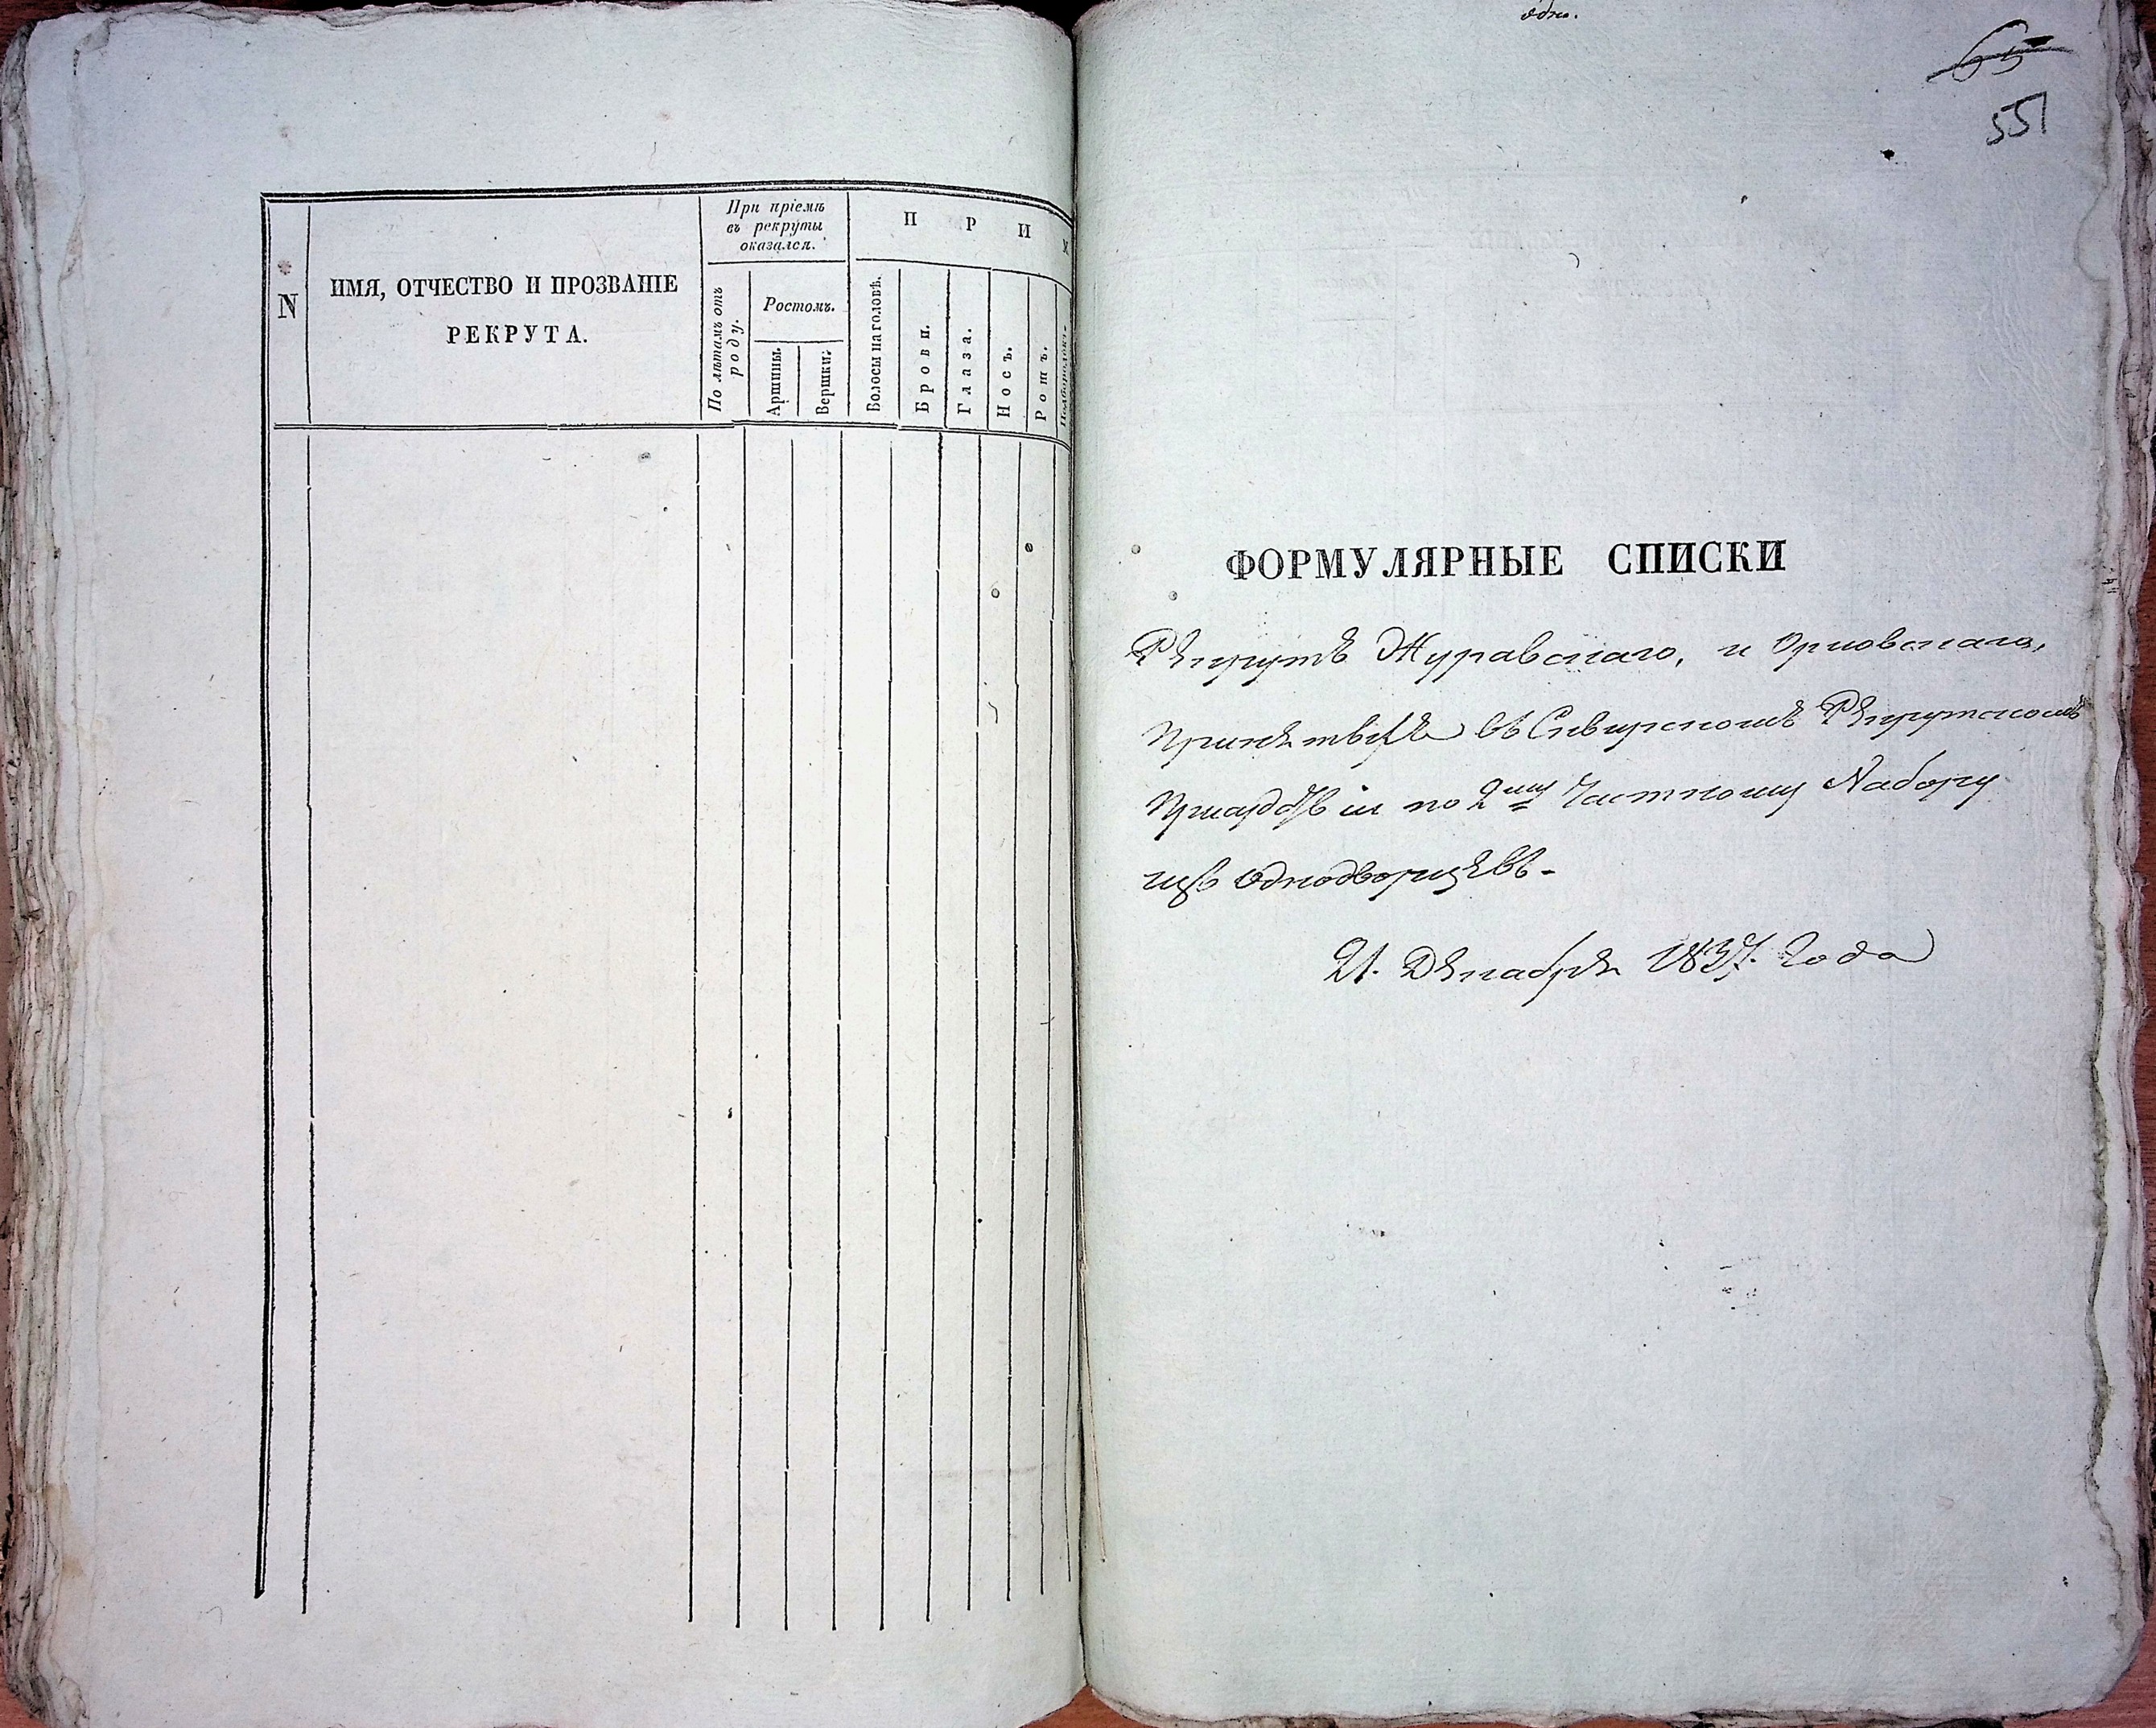 N
ИМЯ, ОТЧЕСТВО И ПРОЗВАНІЕ
РЕКРУТА.
При пріемѣ
въ рекруты
оказался.
По лѣтамъ отъ
роду.
Ростомъ.
Аршины.
Вершки.
П Р И М
Волосы на головѣ.
Брови.
Глаза.
Носъ.
Ротъ.
Подбородокъ.
65
551
ФОРМУЛЯРНЫЕ СПИСКИ
Рекрутъ Журавскаго, и Орловскаго,
Принятыхъ въ Сквирскомъ Рекрутскомъ
Присудствіи по 2му Частному Набору
изъ Однодворцевъ.
21. Декабря 1837. Года